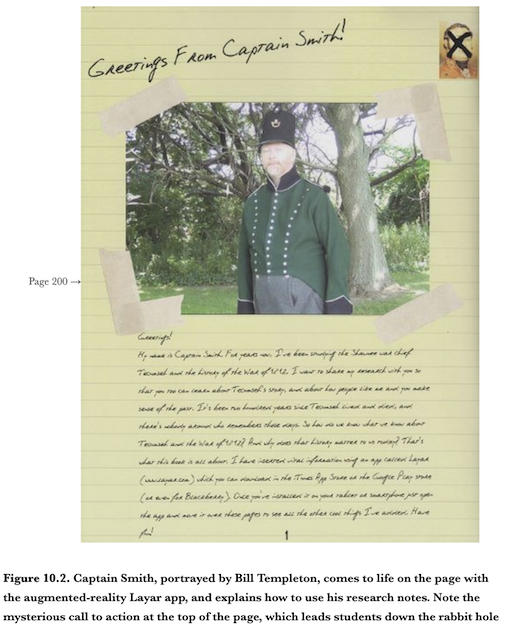 Greetings From Captain Smith!
Page 200 →
Greetings!
My name is Captain Smith. For years now, I've been studying the Shawnee war chief
Tecumseh and the history of the War of 1812. I want to share my research with you so
that you too can learn about Tecumseh's story, and about how people like me and you make
sense of the past. It's been two hundred years since Tecumseh lived and died, and
there's nobody around who remembers those days. So how do we know what we know about
Tecumseh and the War of 1812? And why does that history matter to us today? That's
what this book is all about. I have inserted vital information using an app called Layar
(www.layar.com) which you can download in the iTunes App Store or the Google Play store
(or even for Blackberry). Once you've installed it on your tablet or smartphone just open
the app and move it over these pages to see all the other cool things I've added. Have
fun!
1
Figure 10.2. Captain Smith, portrayed by Bill Templeton, comes to life on the page with
the augmented-reality Layar app, and explains how to use his research notes. Note the
mysterious call to action at the top of the page, which leads students down the rabbit hole